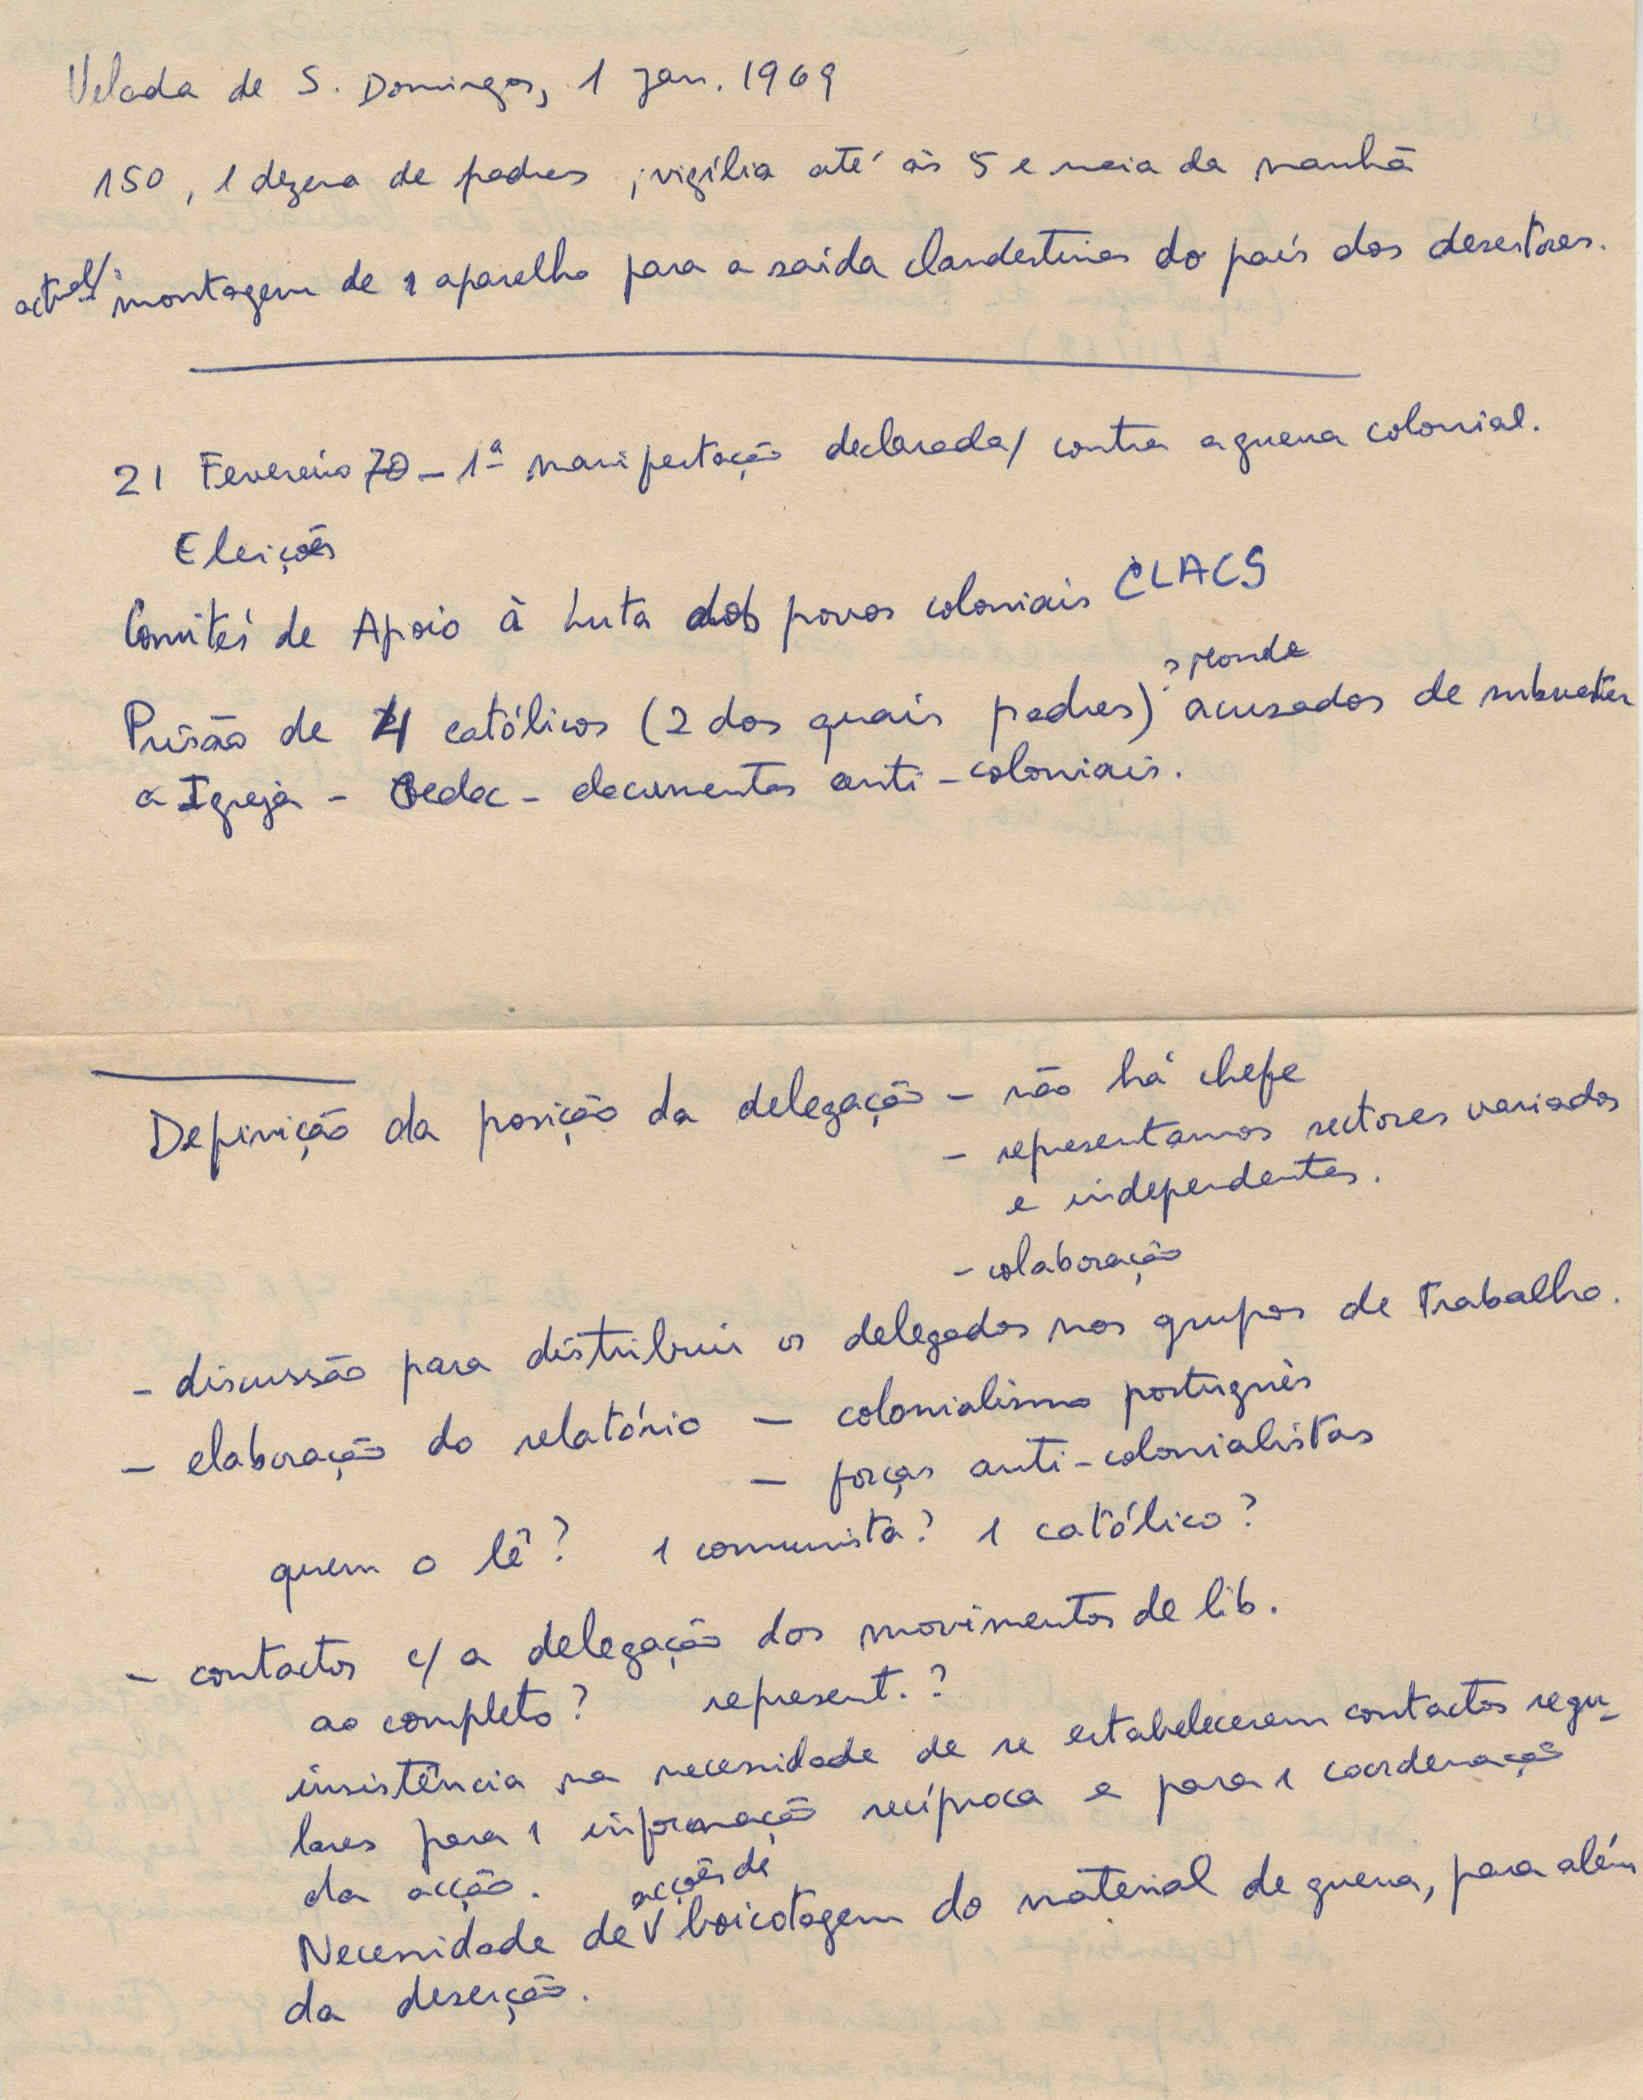 Velada de S. Domingos, 1 Jan. 1969
150, 1 dezena de padres, vigília até às 5 e meia da manhã
actual/: montagem de 1 aparelho para a saída clandestina do país dos desertores.
21 Fevereiro 70 - 1ª manifestação declarada/ contra a guerra colonial.
Eleições
Comités de Apoio à Luta dos povos coloniais CLACS
? Monde
Prisão de 4 católicos (2 dos quais padres) acusados de subverter
a Igreja - Gedoc - documentos anti-coloniais.
Definição da posição da delegação - não há chefe
- representamos sectores variados
e independentes.
- colaboração
- discussão para distribuir os delegados nos grupos de trabalho.
- elaboração do relatório - colonialismo português
- forças anti-colonialistas
quem o lê? 1 comunista? 1 católico?
- contactos c/ a delegação dos movimentos de lib.
ao completo? represent.?
insistência na necessidade de se estabelecerem contactos regu-
lares para 1 informação recíproca e para 1 coordenação
da acção.
acções de
Necessidade de V boicotagem do material de guerra, para além
da deserção.